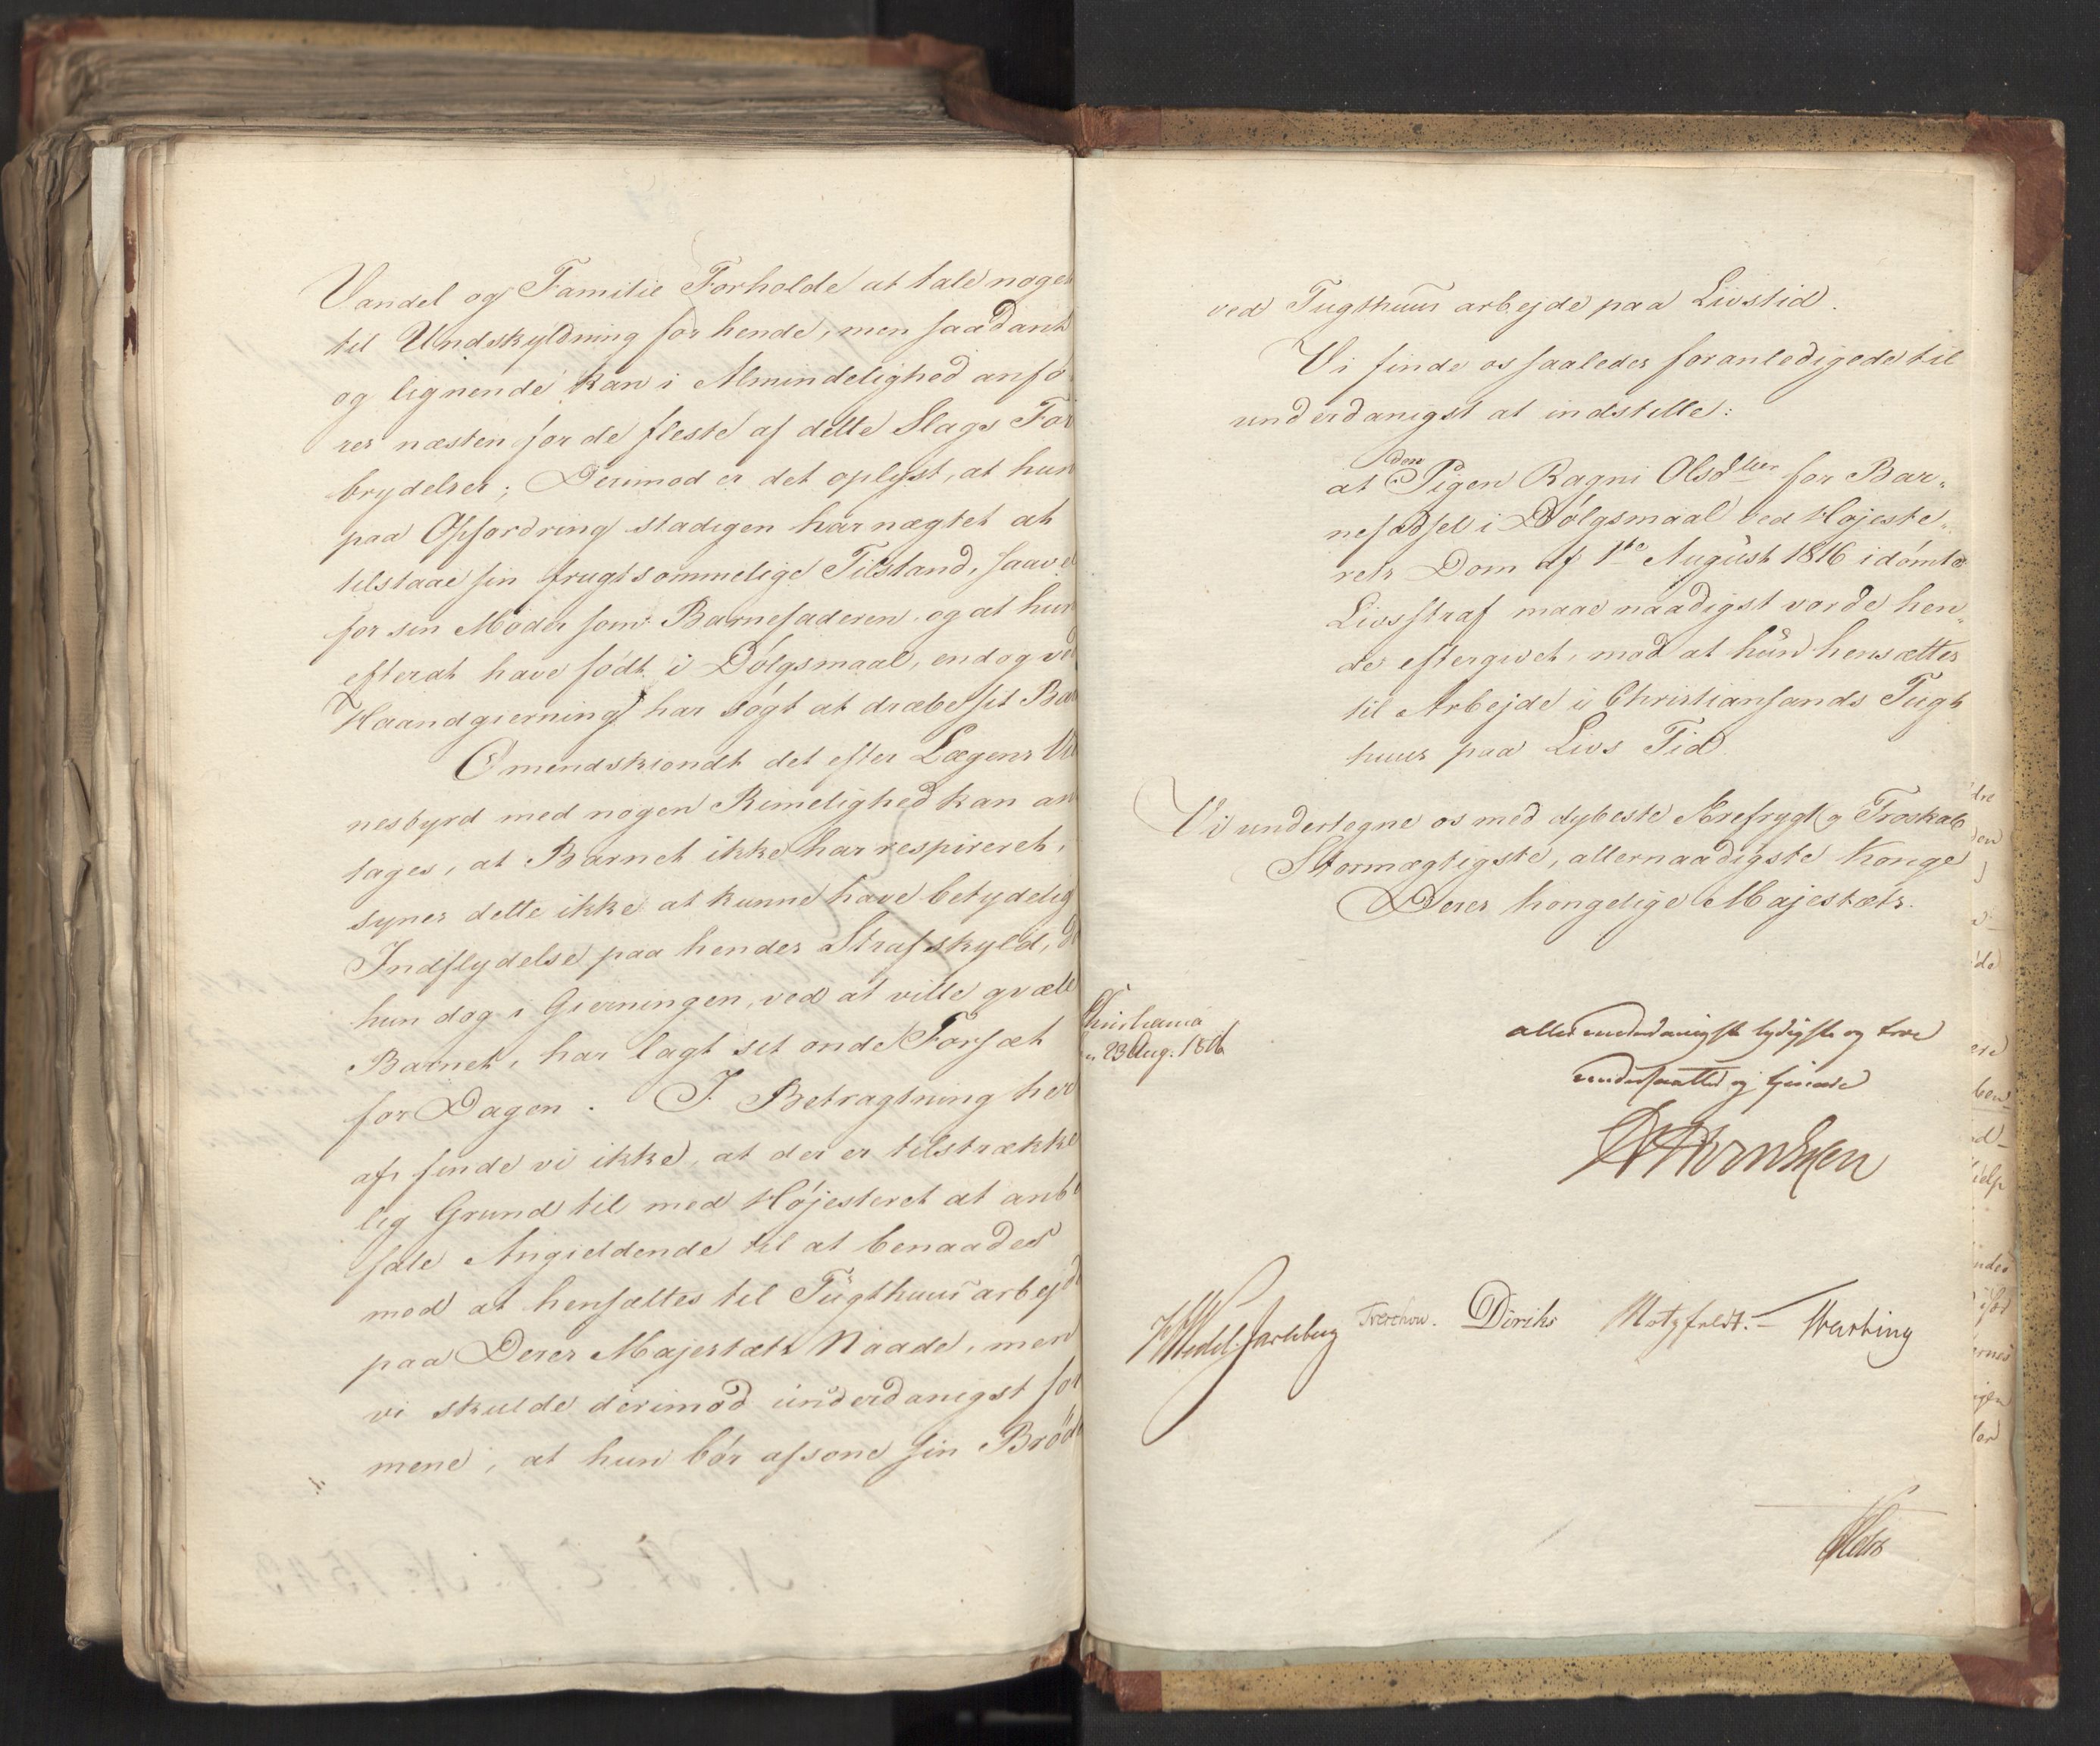 Vandel og Familie Forholde at tale noget
til Undskyldning for hende, men saadant
og lignende kan i Almindelighed anfø
res næsten for de fleste af dette Slags For
brydelser; Derimod er det oplyst, at hun
paa Opfordring stadigen har nægtet at
tilstaae sin frugtsommelige Tilstand, saavel
for sin Moder som Barnefaderen, og at hun
efterat have født i Dølgsmaal, endog ved
Haandgierning har søgt at dræbe sit Bar
Omendskiondt det efter Lægens
nesbyrd med nogen Rimelighed kan an
tages, at Barnet ikke har respireret,
synes dette ikke at kunne have betydelig
Indflydelse paa hendes Strafskyld, da
hun dog i Gierningen, ved at ville qvæle
Barnet, har lagt sit onde Forsæt
for Dagen. I Betragtning her
af, finde vi ikke, at der er tilstrække
lig Grund til med Højesteret at anbe
fale Angieldende til at benaades
med at hensættes til Tugthuus arbejde
paa Deres Majestæts Naade, men
vi skulde derimod underdanigst for
mene, at hun bør afsone sin Brøde
N. St. C. J. No. 1543.
ved Tugthuus arbejde paa Livstid.
Vi finde os saaledes foranledigede til
underdanigst at indstille:
den
at Pigen Ragni Olsdtter for Bar„
nefødsel i Dølgsmaal ved Højeste„
rets Dom af 1te August 1816 idømte
Livsstraf maae naadigst vorde hen„
des eftergivet, mod at hun hensættes
til Arbejde i Christiansands Tugt
huus paa Livs Tid.
Vi undertegne os med dybeste Ærefrygt og Troskab
Stormægtigste, allernaadigste Konge
Deres kongelige Majestæts.
Christiania
23 Aug. 1816
allerunderdanigste lydigste og troe
undersaatter og tjenere
Wedel Jarlsberg Treschow. Diriks Motzfeldt.